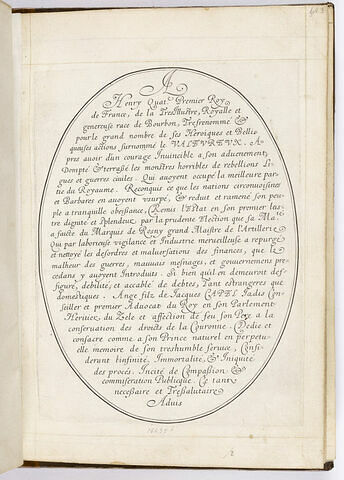 A
Henry Quat. Premier Roy
de France, de la Tresillustre, Royalle et
genereuse race de Bourbon, Tresrenommé &
pour le grand nombre de ses Heroiques et Belli
queuses actions surnommé le VALEUREUX. A
pres auoir d'un courage Inuincible a son aduenement,
Dompté & terrassé les monstres horribles de rebellions Li
gues et guerres ciuiles. Qui auoyent occupé la meilleure par
tie du Royaume. Reconquis ce que les nations circonuoisines
et Barbares en auoyent vsurpé, & reduit et ramené son peu
ple a tranquille obeissance, Remis l'Estat en son premier lus
tre dignite et splendeur par la prudente Election que sa Ma.te
a faicte du Marquis de Rosny grand Maistre de l'Artillerie
Qui par laborieuse vigilance et Industrie merueilleuse a repurgé
et nettoyé les desordres et maluersations des finances, que le
malheur des guerres, mauuais mesnages, et gouuernements pre
cedans y auoyent Introduits. Si bien quil en demeuroit def-
figuré, debilité, et accablé de debtes, Tant estrangeres que
domestiques. Ange filz de Jacques CAPEL Jadis Con
seiller et premier Aduocat du Roy en son Parlement
Heritier du Zele et affection de feu son Pere a la
conseruation des droicts de la Couronne. Dedie et
consacre comme a son Prince naturel en perpetu
elle memoire de son treshumble seruice, Consi-
derant l'infinité, Immortalité, & Iniquité
des procés. Incité de Compassion &
commiseration Publicque. Ce tant
necessaire et Tressalutaire
Aduis
2